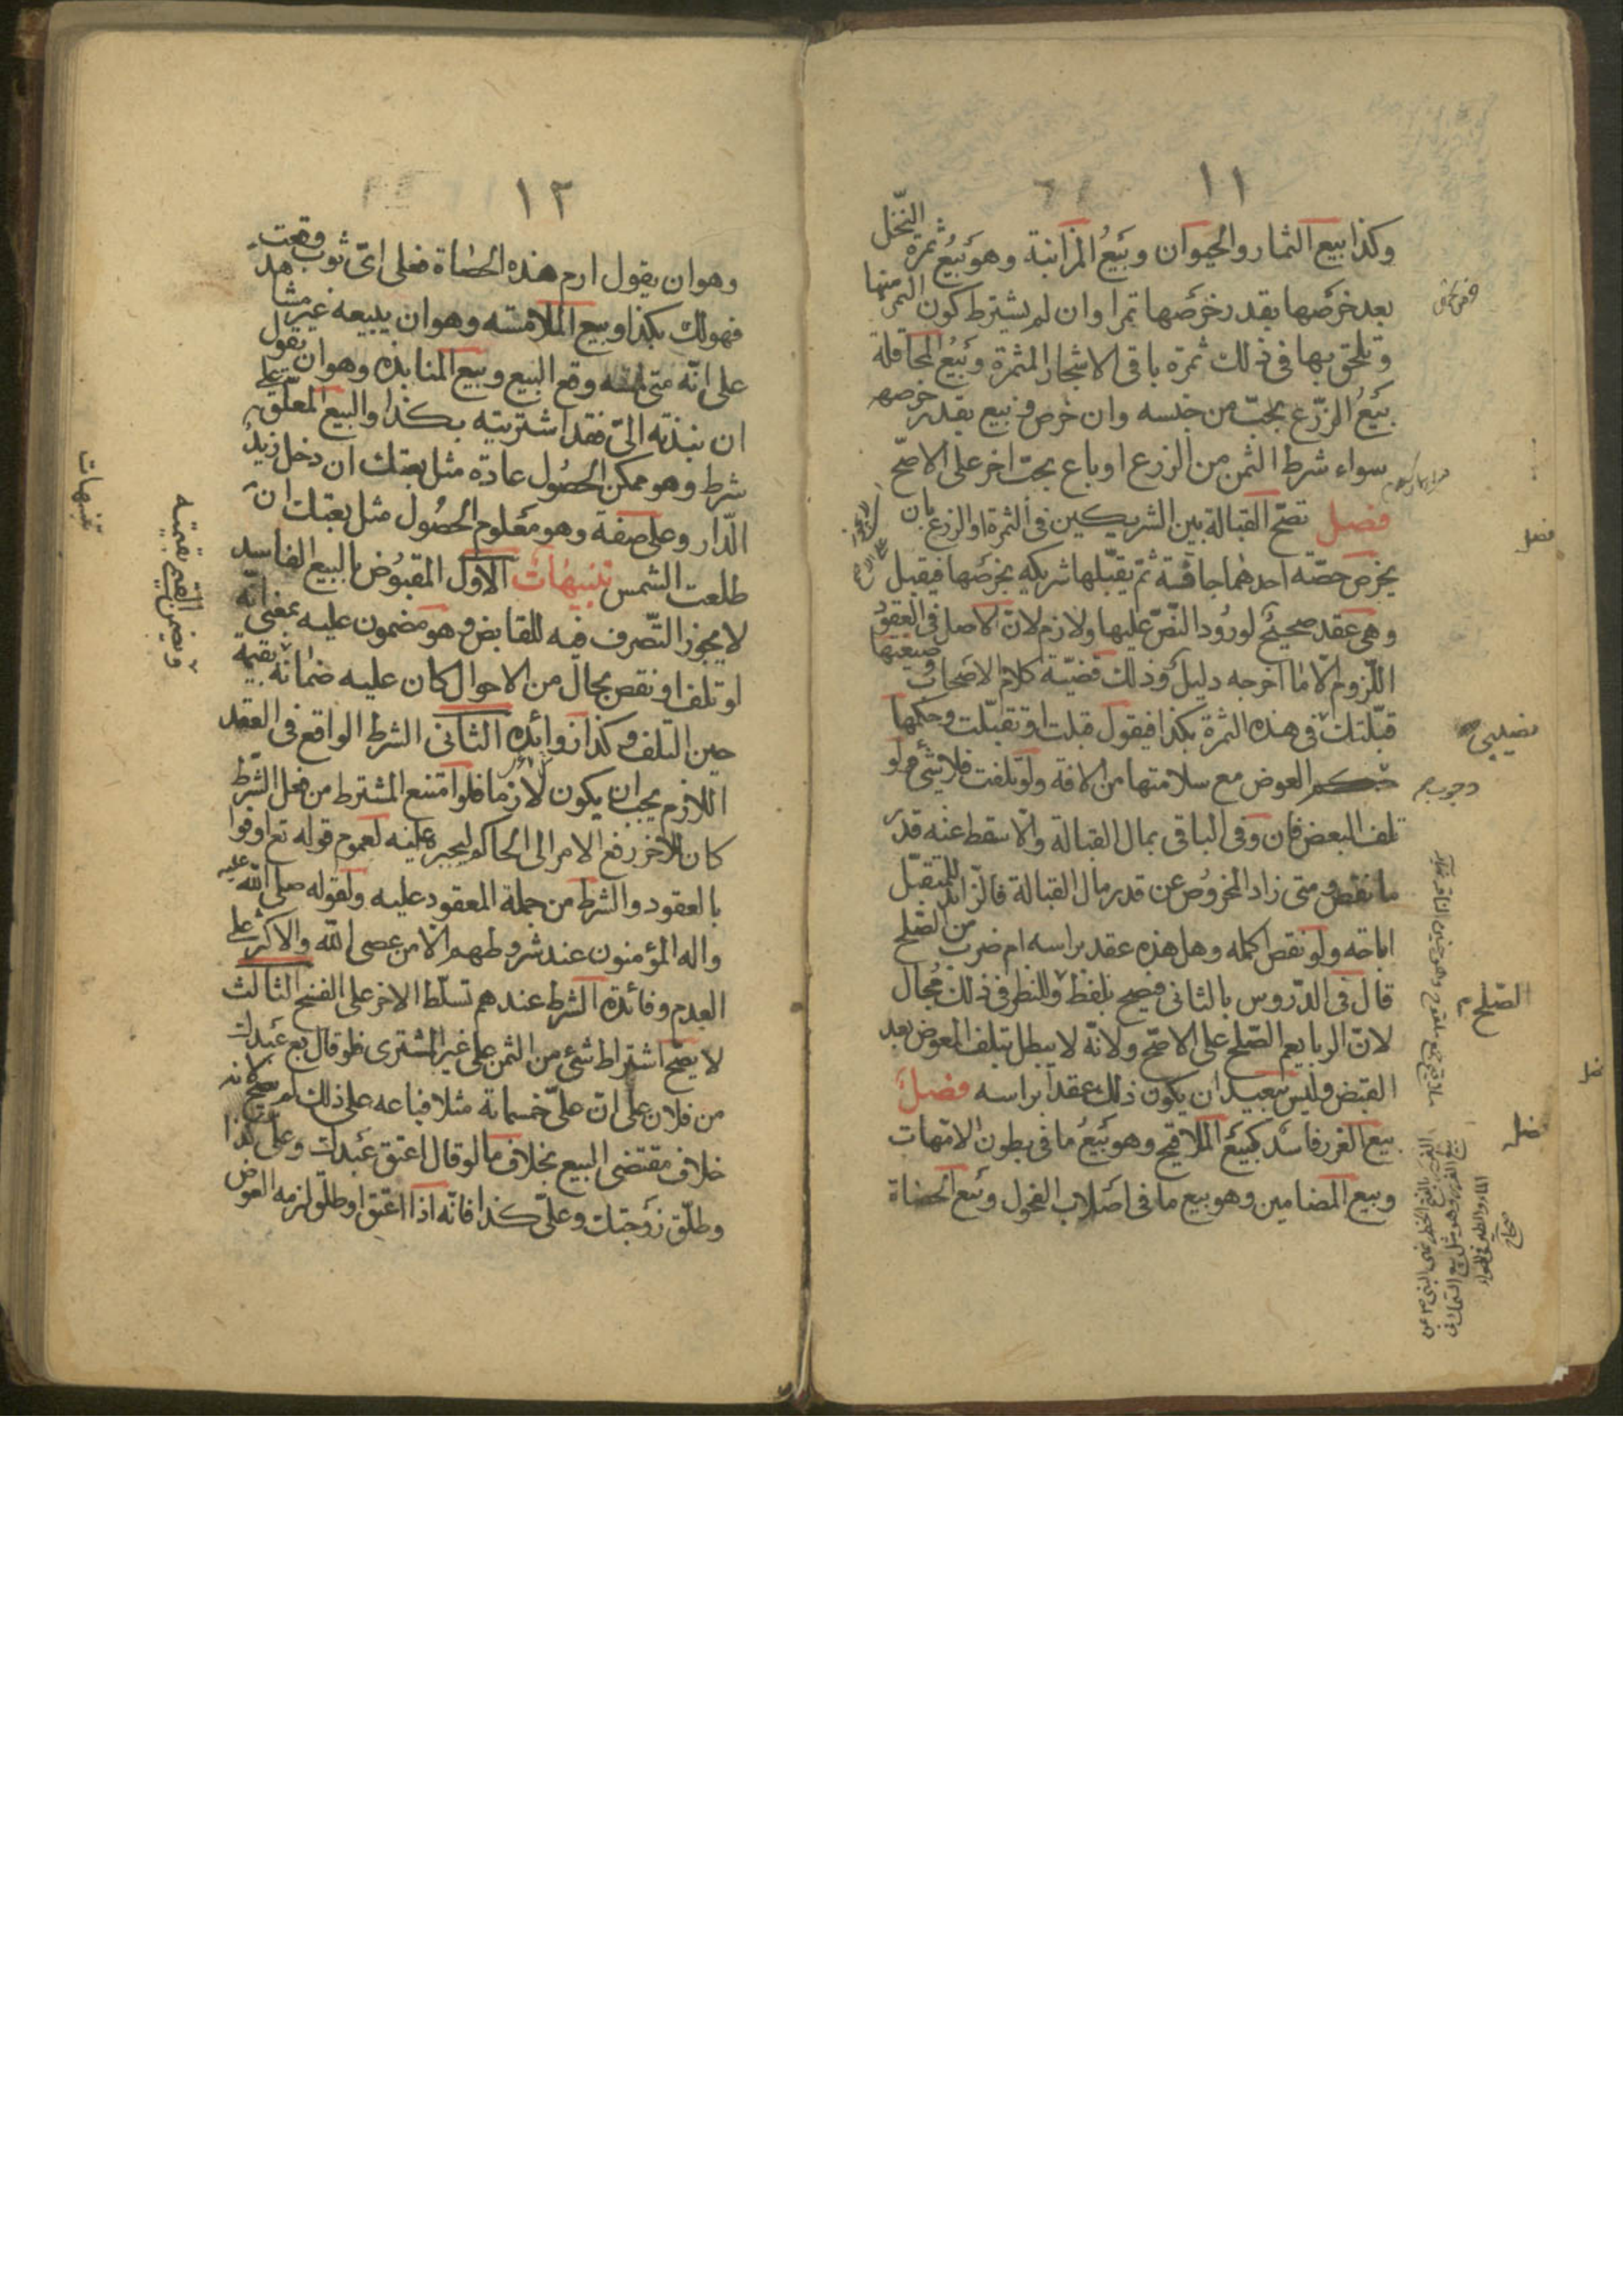 ١١
وكذا بيع الثمار والحيوان وبيع المزابنة وهو بيع ثمرة النخل
بعد خرصها بقدر خرصها تمرا وان لم يشترط كون التمر منها
وتلحق بها في ذلك ثمرة باقي الاشجار المثمرة وبيع المحاقلة
بيع الزرع بحب من جنسه وان خرص وبيع بقدر خرصه
سواء شرط الثمن من الزرع او باع بحب اخر على الاصح
فصل تصح القبالة بين الشريكين في الثمرة او الزرع بان
يخرص حصته احدهما جافة ثم يقبلها شريكه بخرصها فيقبل
وهي عقد صحيح لورود النص عليها ولازم لان الاصل في العقود
اللزوم الا ما اخرجه دليل وذلك قضية كلام الاصحاب وصيغتها
قبلتك في هذه الثمرة بكذا فيقول قبلت او تقبلت وحكمها
العوض مع سلامتها من الافة ولو تلفت فلا شيء ولو
تلف البعض فان وفى الباقي بمال القبالة والا سقط عنه قدر
ما نقص ومتى زاد المخروص عن قدر مال القبالة فالزايد للمتقبل
اباحه ولو نقص اكمله وهل هذه عقد براسه ام ضرب من الصلح
قال في الدروس بالثاني فيصح بلفظ وللنظر في ذلك مجال
لان الربا يعم الصلح على الاصح ولانه لا يبطل بتلف المعوض بعد
القبض وليس ببعيد ان يكون ذلك عقدا براسه فصل
بيع الغرر فاسد كبيع الملاقيح وهو بيع ما في بطون الامهات
وبيع المضامين وهو بيع ما في اصلاب الفحول وبيع الحصاة
فصل
الصلح
فصل
١٢
وهو ان يقول ارم هذه الحصاة فعلى اي ثوب وقعت
فهو لك بكذا وبيع الملامسة وهو ان يبيعه غير مشاهد
على انه متى لمسه وقع البيع وبيع المنابذه وهو ان يقول
ان نبذته الي فقد اشتريته بكذا والبيع المعلق على
شرط وهو ممكن الحصول عادة مثل بعتك ان دخل زيد
الدار وعلى صفة وهو معلوم الحصول مثل بعتك ان
طلعت الشمس تنبيهات الاول المقبوض بالبيع الفاسد
لا يجوز التصرف فيه للقابض وهو مضمون عليه بمعنى انه
لو تلف او نقص بحال من الاحوال كان عليه ضمانه بقيمة
حين التلف وكذا زوائده الثاني الشرط الواقع في العقد
اللازم يجب ان يكون لازما فلو امتنع المشترط من فعل الشرط
كان للاخر رفع الامر الى الحاكم ليجبره عليه لعموم قوله تع اوفوا
بالعقود والشرط من جملة المعقود عليه ولقوله صلى الله عليه
واله المؤمنون عند شروطهم الا من عصى الله والاكثر على
العدم وفائدة الشرط عندهم تسلط الاخر على الفسخ الثالث
لا يصح اشتراط شئ من الثمن على غير المشترى فلو قال بع عبدك
من فلان على ان علي خمسمائة مثلا فباعه على ذلك لم يصح لانه
خلاف مقتضى البيع بخلاف ما لو قال اعتق عبدك وعلي كذا
وطلق زوجتك وعلي كذا فانه اذا اعتق او طلق لزمه العوض
تنبيهات